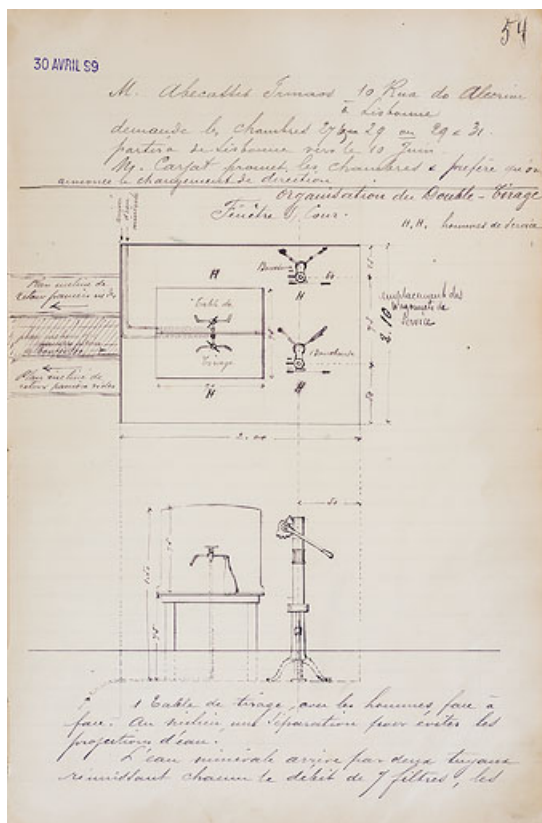 54
30 AVRIL 99
M. Abecassis Irmaos 10 Rua do Alecrim
à Lisbonne
demande les chambres 27 29 ou 29 & 31.
partira de Lisbonne vers le 10 Juin.
M. Carjat promet les chambres & préfère qu'on
annonce le changement de direction
Organisation du Double-Tirage
Fenêtre Cour.
H.H. hommes de service
H
H
Plan incliné de
retour paniers vides
Table de
Tirage
emplacement des
wagonnets de
Service
2.10
Plan incliné de
retour paniers vides
H
H
2.00
50
1 Table de tirage, avec les hommes face à
face. Au milieu une séparation pour éviter les
projections d'eau.
L'eau minérale arrive par deux tuyaux
réunissant chacun le débit de 7 filtres, les